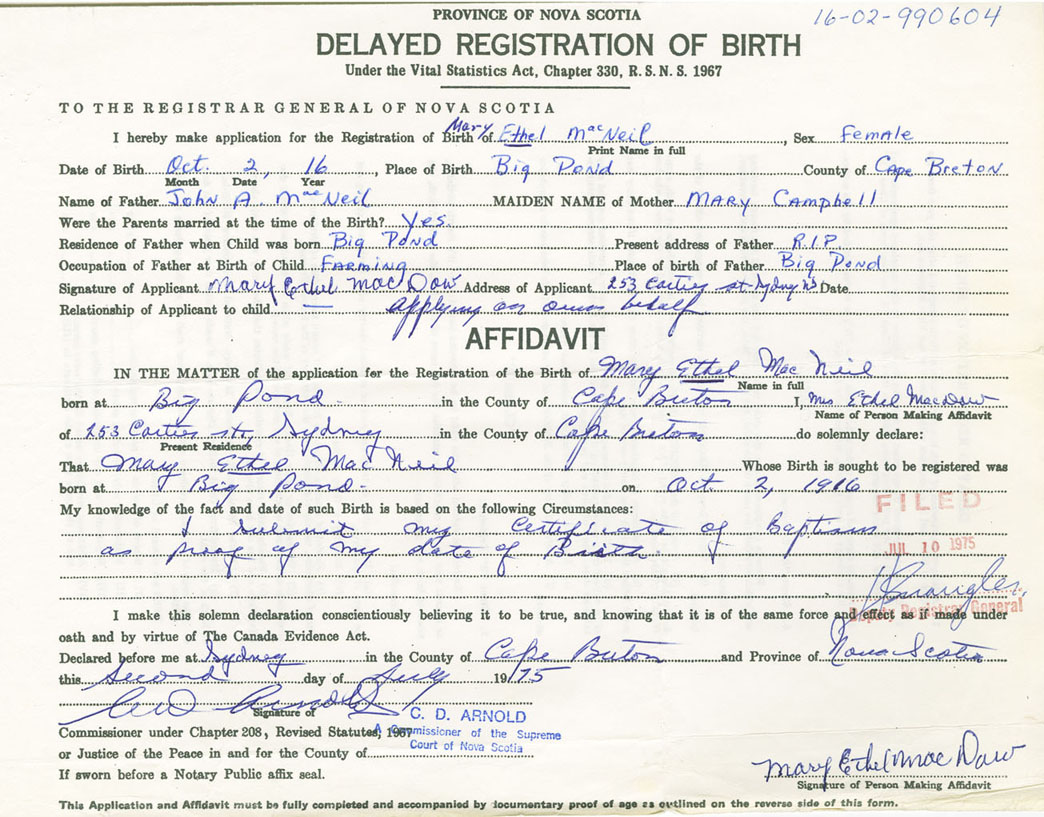 PROVINCE OF NOVA SCOTIA
16-02-990604
DELAYED REGISTRATION OF BIRTH
Under the Vital Statistics Act, Chapter 330, R. S. N. S. 1967
TO THE REGISTRAR GENERAL OF NOVA SCOTIA
I hereby make application for the Registration of Birth of Mary Ethel MacNeil, Sex Female
Print Name in full
Date of Birth Oct. 2, 16, Place of Birth Big Pond County of Cape Breton
Month Date Year
Name of Father John A. MacNeil MAIDEN NAME of Mother MARY Campbell
Were the Parents married at the time of the Birth? Yes.
Residence of Father when Child was born Big Pond Present address of Father R.I.P.
Occupation of Father at Birth of Child FARMING Place of birth of Father Big Pond
Signature of Applicant Mary Ethel MacDow Address of Applicant 253 Cartier st Sydney NS Date
Relationship of Applicant to child applying on own behalf
AFFIDAVIT
IN THE MATTER of the application for the Registration of the Birth of Mary Ethel Mac Neil
Name in full
born at Big Pond in the County of Cape Breton I, Mrs Ethel MacDow
Name of Person Making Affidavit
of 253 Cartier st, Sydney in the County of Cape Breton do solemnly declare:
Present Residence
That Mary Ethel Mac Neil Whose Birth is sought to be registered was
born at Big Pond on Oct. 2, 1916
My knowledge of the fact and date of such Birth is based on the following Circumstances:
FILED
I submit my Certificate of Baptism
as proof of my date of Birth.
JUL 10 1975
I make this solemn declaration conscientiously believing it to be true, and knowing that it is of the same force and effect as if made under
Deputy Registrar General
oath and by virtue of The Canada Evidence Act.
Declared before me at Sydney in the County of Cape Breton and Province of Nova Scotia
this Second day of July 1975
C D Arnold
Signature of
C. D. ARNOLD
Commissioner under Chapter 208, Revised Statutes, 1967
A Commissioner of the Supreme
Court of Nova Scotia
or Justice of the Peace in and for the County of
If sworn before a Notary Public affix seal.
Mary Ethel Mac Dow
Signature of Person Making Affidavit
This Application and Affidavit must be fully completed and accompanied by documentary proof of age as outlined on the reverse side of this form.